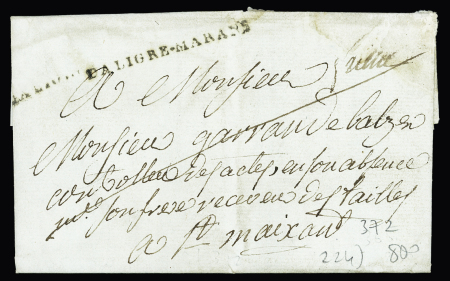 LA LIGRE-MARANS
A Monsieur
Monsieur garran de balzan
controlleur des actes, en son absence
son frere receveur des tailles
a St maixant
372
224) 800